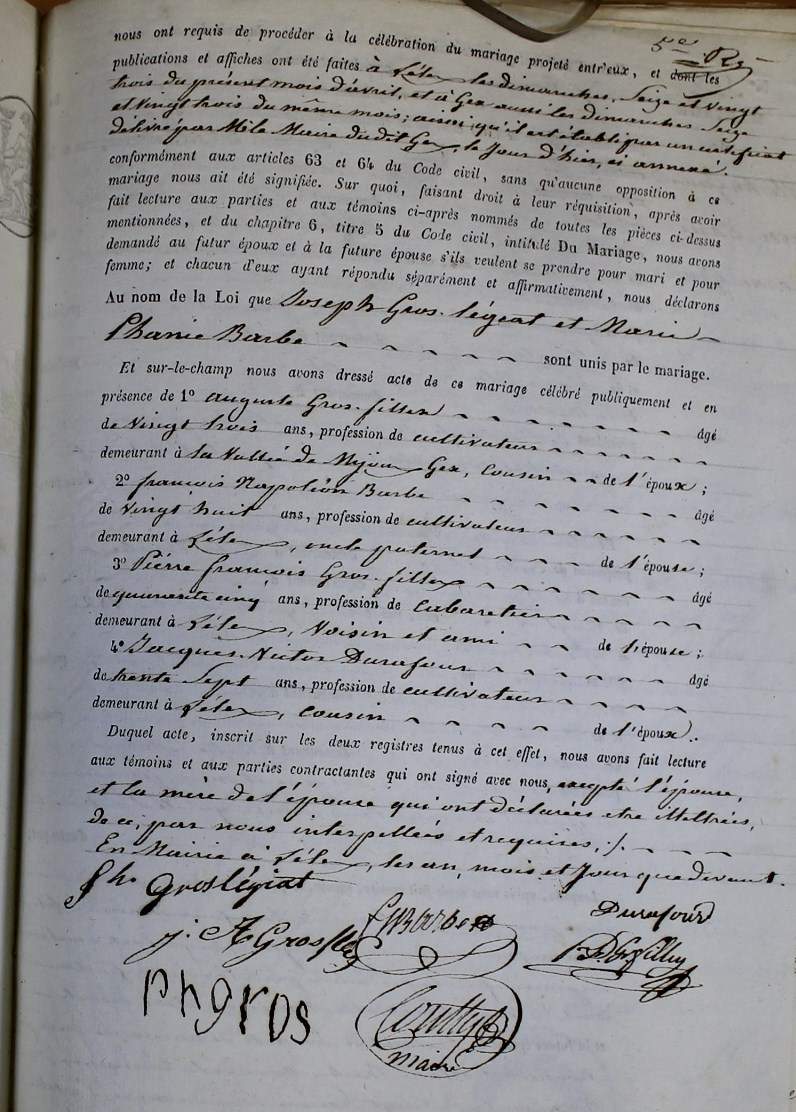 5e Rt
nous ont requis de procéder à la célébration du mariage projeté entr'eux, et dont les
publications et affiches ont été faites à Lélex les dimanches, Seize et vingt
trois du présent mois d'avril, et à Gex aussi les dimanches Seize
et vingt trois du même mois, ainsi qu'il est établi par un certificat
délivré par Mr le Maire dudit Gex, le Jour d'hier, ci annexé.
conformément aux articles 63 et 64 du Code civil, sans qu'aucune opposition à ce
mariage nous ait été signifiée. Sur quoi, faisant droit à leur réquisition, après avoir
fait lecture aux parties et aux témoins ci-après nommés de toutes les pièces ci-dessus
mentionnées, et du chapitre 6, titre 5 du Code civil, intitulé Du Mariage, nous avons
demandé au futur époux et à la future épouse s'ils veulent se prendre pour mari et pour
femme; et chacun d'eux ayant répondu séparément et affirmativement, nous déclarons
Au nom de la Loi que Joseph Gros-légeat et Marie
Phanie Barbe sont unis par le mariage.
Et sur-le-champ nous avons dressé acte de ce mariage célébré publiquement et en
présence de 1° auguste Gros-fillex âgé
de Vingt trois ans, profession de cultivateur
demeurant à la Vallée de Mijoux Gex, Cousin de l'époux;
2° françois Napoléon Barbe âgé
de Vingt huit ans, profession de cultivateur
demeurant à Lélex, oncle paternel de l'épouse;
3° Pierre françois Gros-fillex âgé
de quarante cinq ans, profession de Cabaretier
demeurant à Lélex, Voisin et ami de l'épouse;
4° Jacques-Victor Durafour âgé
de trente Sept ans, profession de cultivateur
demeurant à Lélex, cousin de l'époux.
Duquel acte, inscrit sur les deux registres tenus à cet effet, nous avons fait lecture
aux témoins et aux parties contractantes qui ont signé avec nous, excepté l'épouse,
et la mère de l'épouse qui ont déclarées etre illettrées,
de ce, par nous interpellées et requises ./.
En Mairie à Lélex, les an, mois et Jour que devant.
Groslégiat
Barbe Durafour
j. A Grosfillex
phgros
maire